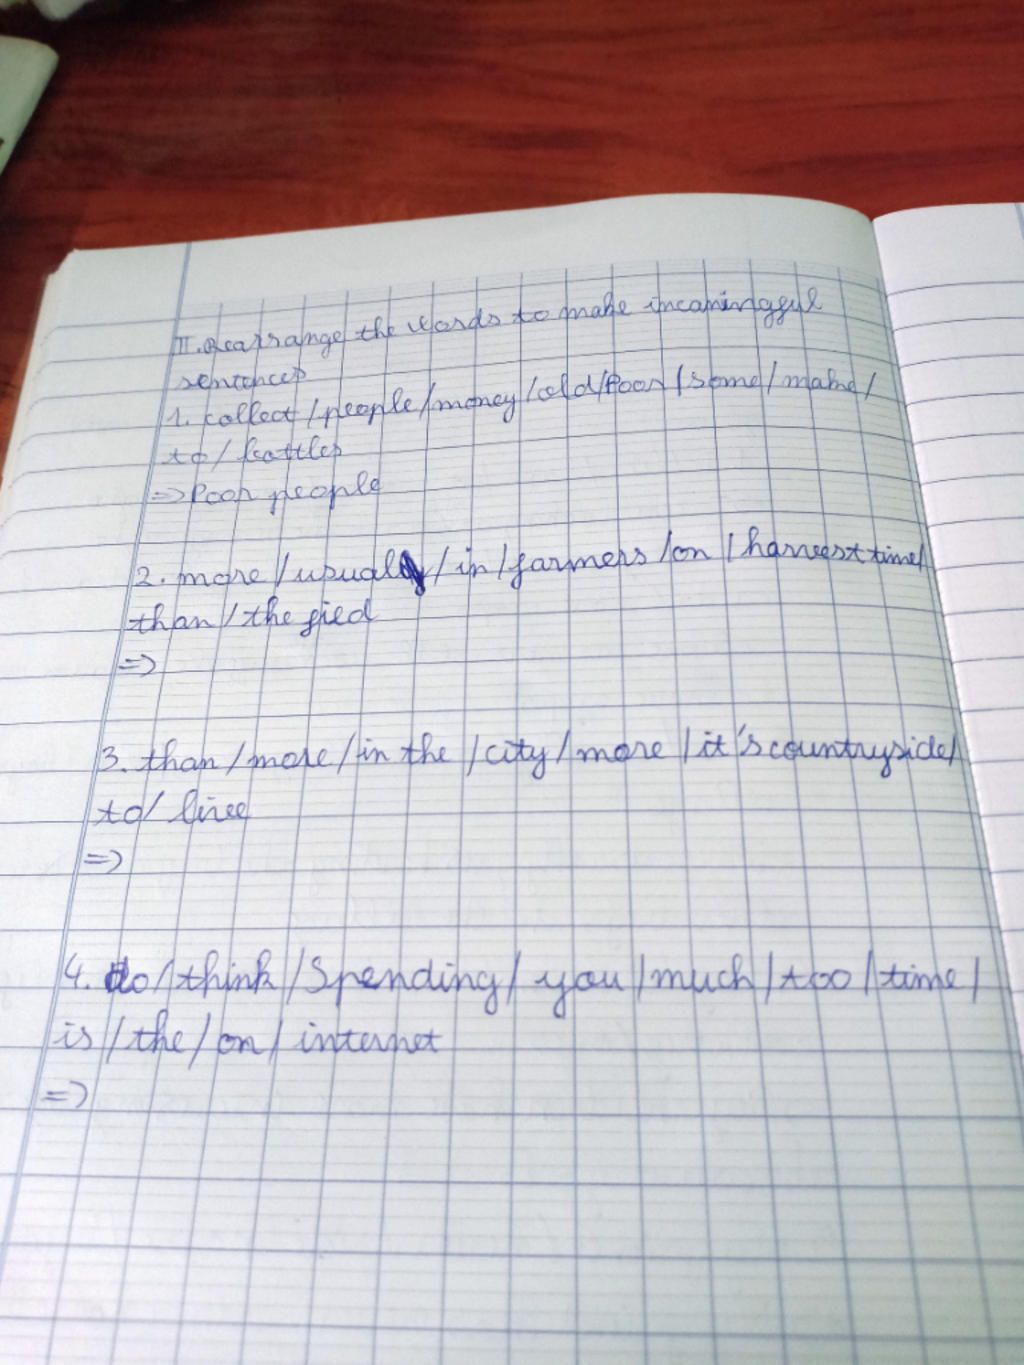 II. Rearrange the words to make meaninggful
sentences
1. collect / people / money / old / Poor / some / make /
to / bottles
=> Poor people
2. more / usual / in / farmers / on / harvest time /
than / the fied
=>
3. than / more / in the / city / more / it's countryside /
to / live
=>
4. do / think / Spending / you / much / too / time /
is / the / on / internet
=>